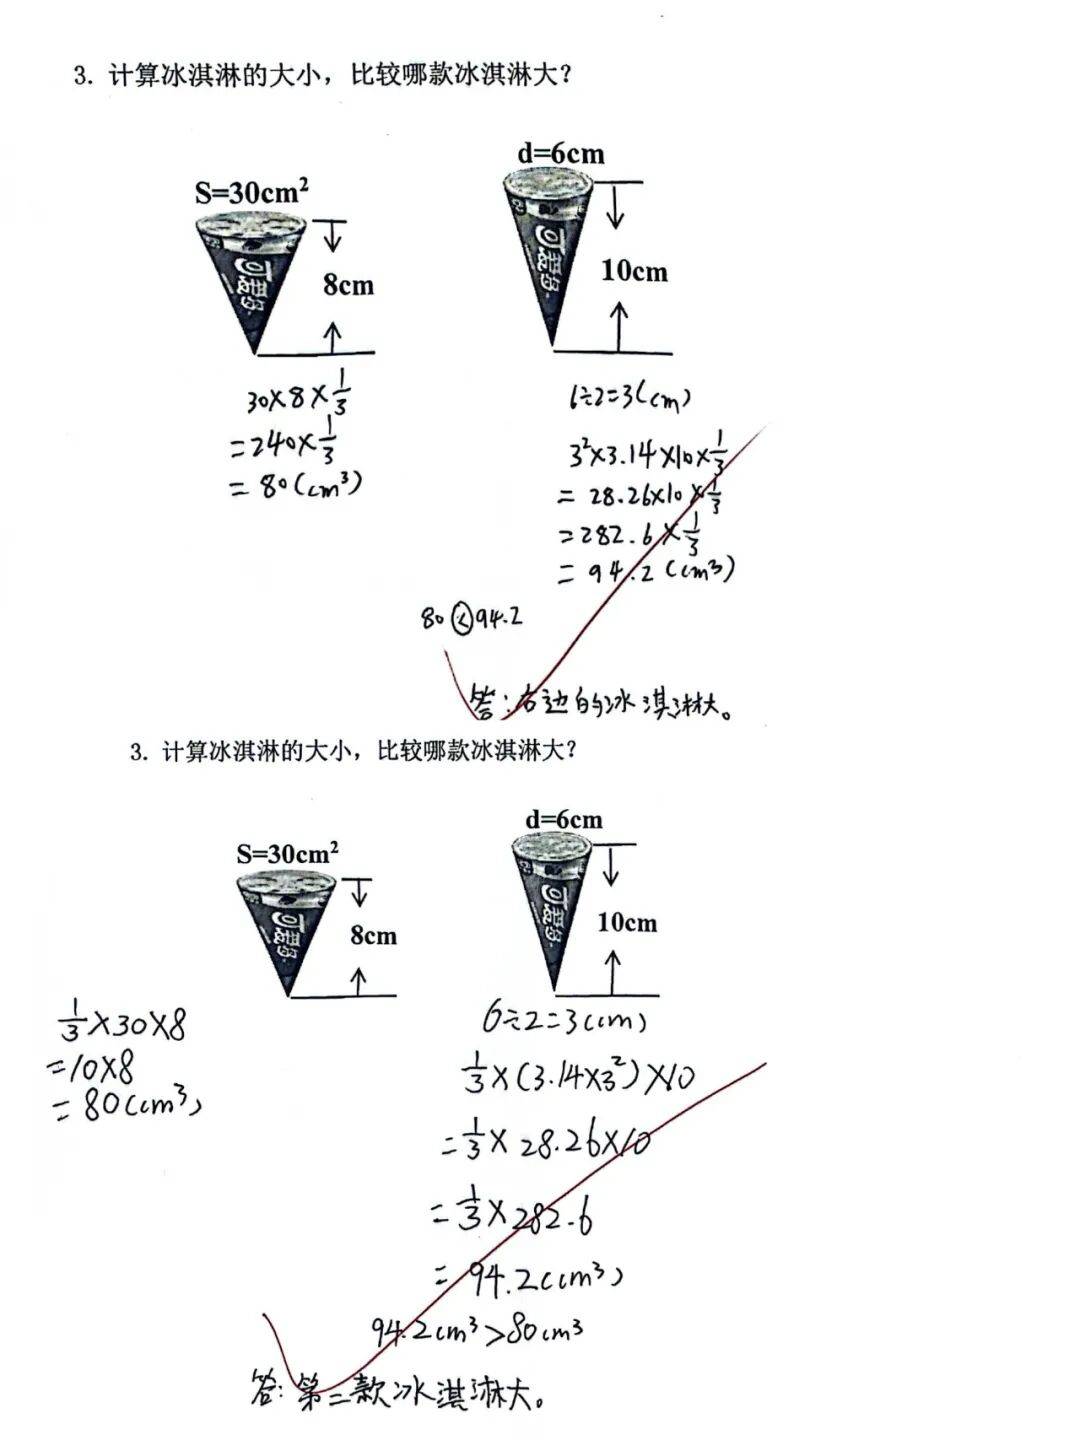 3. 计算冰淇淋的大小，比较哪款冰淇淋大？
d=6cm
S=30cm²
可爱多
可爱多
8cm
10cm
30×8×1/3
=240×1/3
=80(cm³)
6÷2=3(cm)
3²×3.14×10×1/3
=28.26×10×1/3
=282.6×1/3
=94.2(cm³)
80<94.2
答：右边的冰淇淋大。
3. 计算冰淇淋的大小，比较哪款冰淇淋大？
d=6cm
S=30cm²
可爱多
可爱多
8cm
10cm
1/3×30×8
=10×8
=80(cm³)
6÷2=3(cm)
1/3×(3.14×3²)×10
=1/3×28.26×10
=1/3×282.6
=94.2(cm³)
94.2cm³>80cm³
答：第二款冰淇淋大。